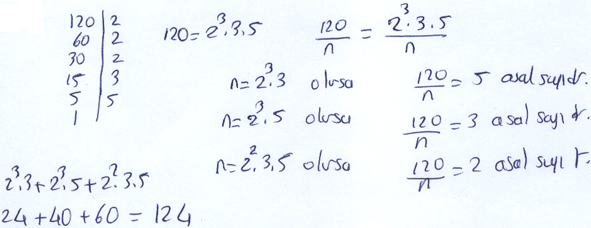 120 | 2
60 | 2
30 | 2
15 | 3
5 | 5
1 |
120 = 2³.3.5
120/n = 2³.3.5/n
n = 2³.3 olursa 120/n = 5 asal sayıdır.
n = 2³.5 olursa 120/n = 3 asal sayıdır.
n = 2².3.5 olursa 120/n = 2 asal sayıdır.
2³.3 + 2³.5 + 2².3.5
24 + 40 + 60 = 124